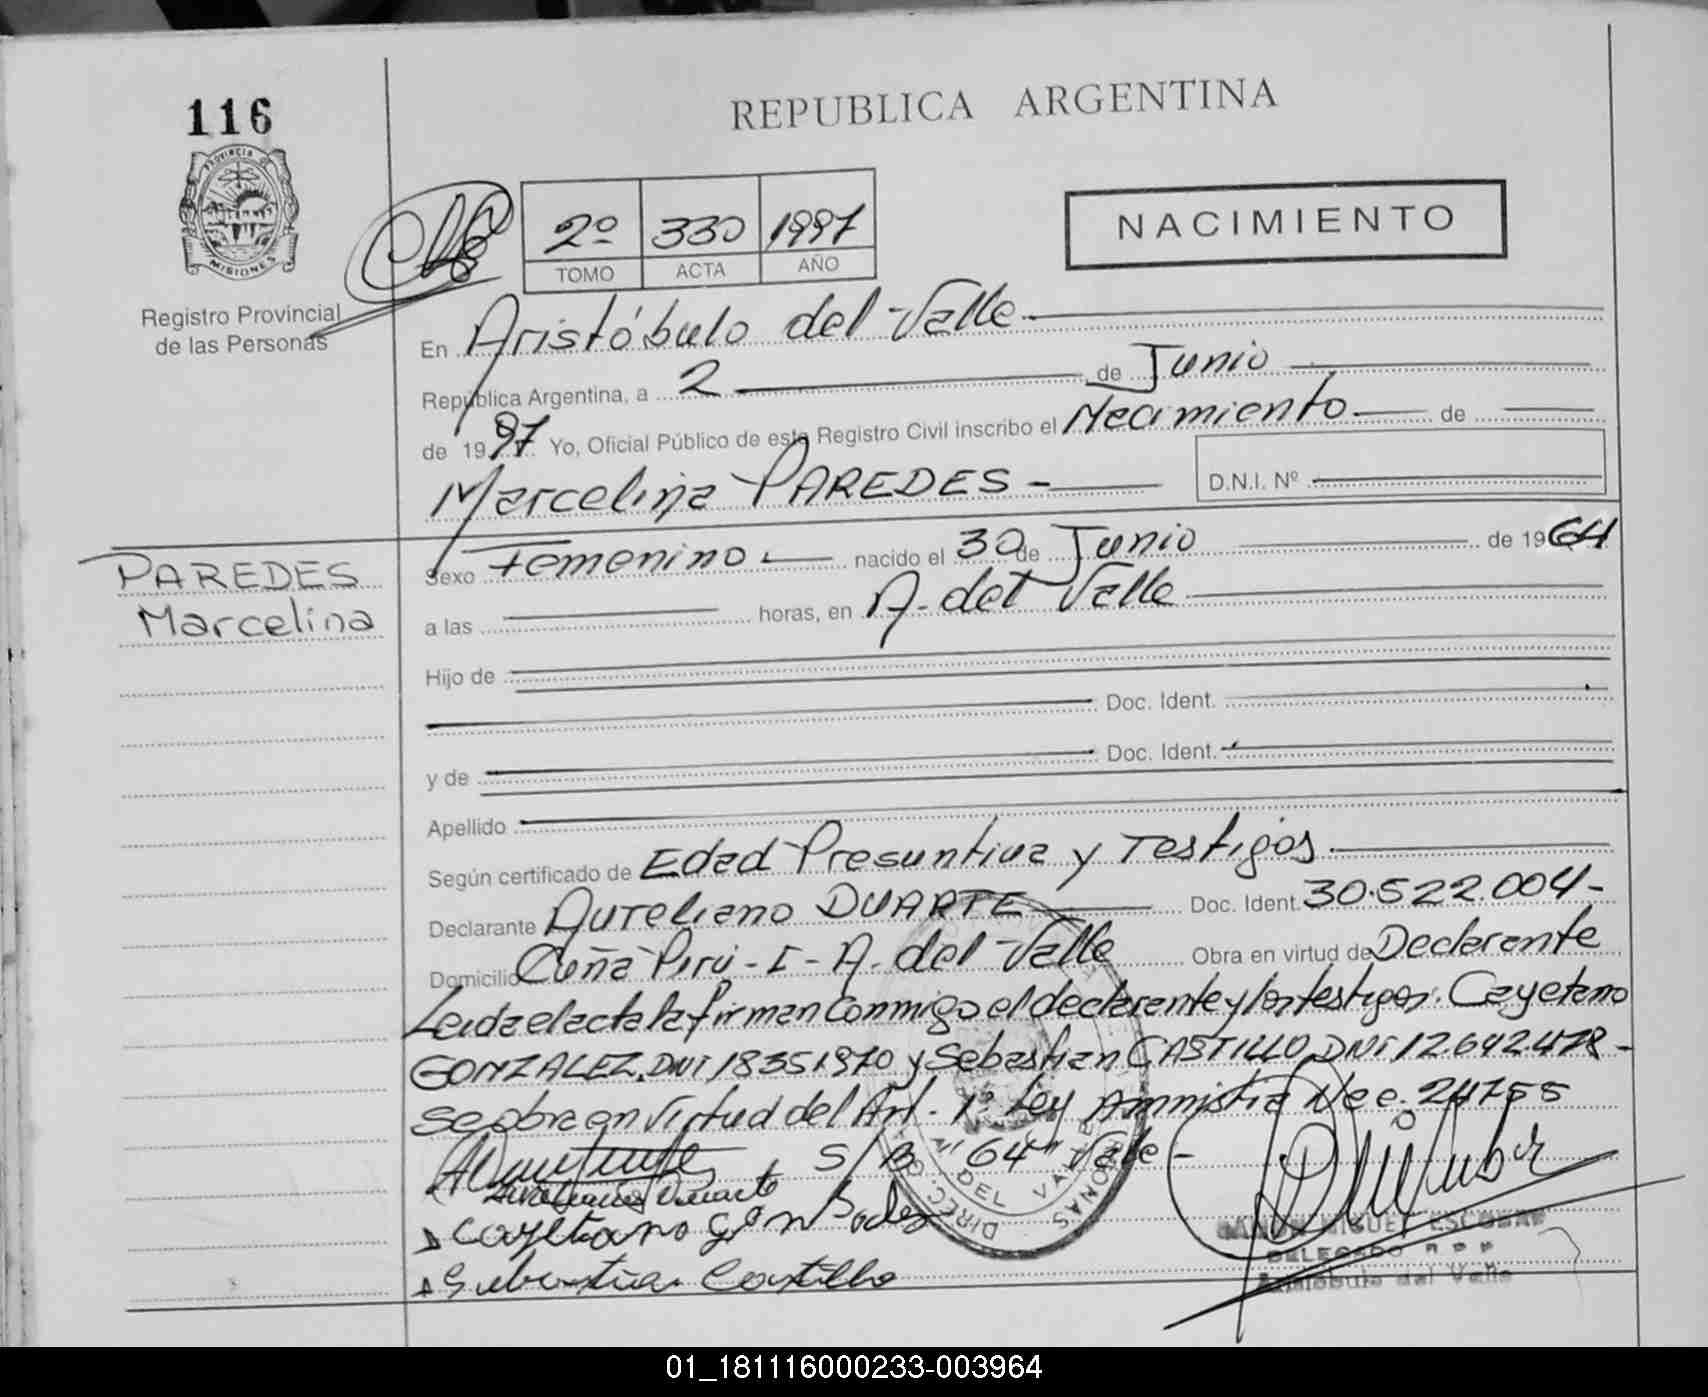 116
REPUBLICA ARGENTINA
PROVINCIA DE
MISIONES
Registro Provincial
de las Personas
2º 330 1997
TOMO ACTA AÑO
NACIMIENTO
En Aristóbulo del Valle
República Argentina, a 2 de Junio
de 1997 Yo, Oficial Público de este Registro Civil inscribo el Nacimiento de
Marcelina PAREDES - D.N.I. Nº
PAREDES
Marcelina
Sexo Femenino nacido el 30 de Junio de 1964
a las horas, en A. del Valle
Hijo de
Doc. Ident.
y de Doc. Ident.
Apellido
Según certificado de Edad Presuntiva y Testigos
Declarante Aureliano DUARTE Doc. Ident. 30.522.004-
Domicilio Cuña Pirú - I - A. del Valle Obra en virtud de Declarante
Leida el acta la firman conmigo el declarante y los testigos. Cayetano
GONZALEZ, DNI 18351970 y Sebastian CASTILLO DNI 12.642.478-
se obra en virtud del Art. 1º Ley Amnistia Nac. 24755
S/B "64" Vale -
Aureliano Duarte
Cayetano
Sebastian Castillo
DIREC. DEL VALLE PERSONAS
MIGUEL ESCOBAR
DELEGADO R P P
Aristóbulo del Valle
01_181116000233-003964